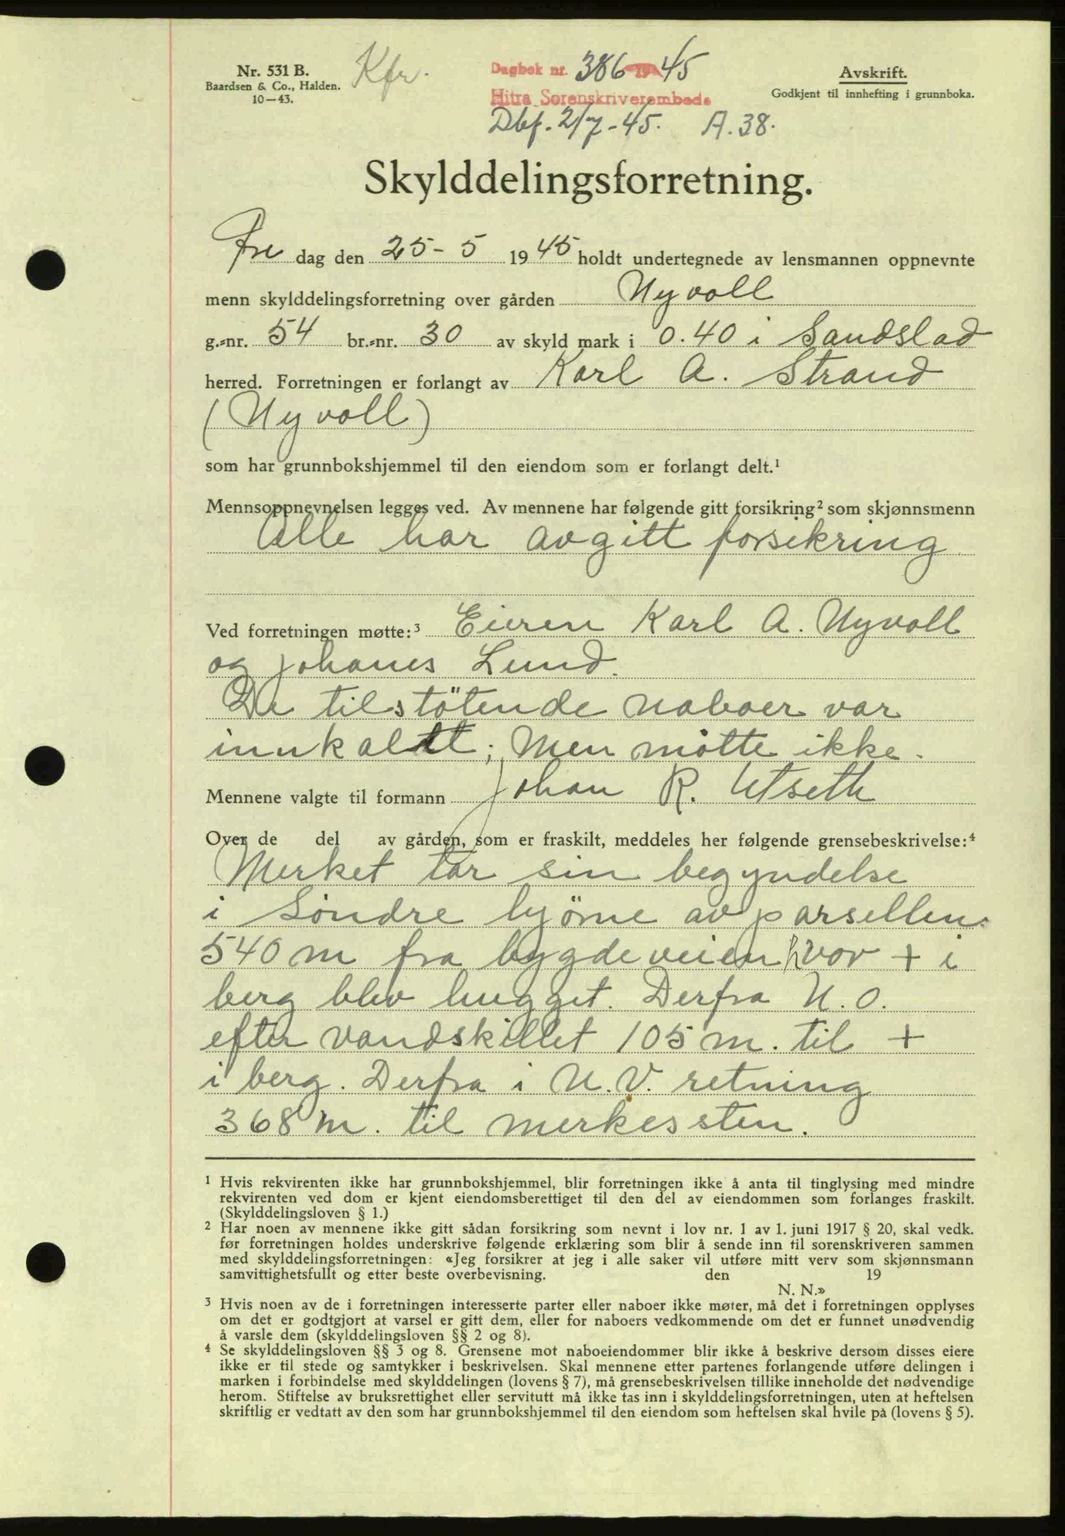 Nr. 531 B.
Baardsen & Co., Halden.
10—43.
Kfr.
Dagbok nr. 386 19 45
Hitra Sorenskriverembede
Dbf. 2/7-45. A. 38.
Avskrift.
Godkjent til innhefting i grunnboka.
Skylddelingsforretning.
Fre dag den 25-5 1945 holdt undertegnede av lensmannen oppnevnte
menn skylddelingsforretning over gården Nyvoll
g.-nr. 54 br.-nr. 30 av skyld mark i 0.40 i Sandstad
herred. Forretningen er forlangt av Karl A. Strand
(Nyvoll)
som har grunnbokshjemmel til den eiendom som er forlangt delt.¹
Mennsoppnevnelsen legges ved. Av mennene har følgende gitt forsikring² som skjønnsmenn
Alle har avgitt forsikring
Ved forretningen møtte:³ Eieren Karl A. Nyvoll
og Johanes Lund.
De tilstötende naboer var
innkaldt; Men møtte ikke.
Mennene valgte til formann Johan R. Utseth
Over de del av gården, som er fraskilt, meddeles her følgende grensebeskrivelse:⁴
Merket tar sin begyndelse
i Söndre hjörne av parsellen.
540 m fra bygdeveien hvor + i
berg blev hugget. Derfra N.O.
efter vandskillet 105 m. til +
i berg. Derfra i N.V. retning
368 m. til merkessten.
¹ Hvis rekvirenten ikke har grunnbokshjemmel, blir forretningen ikke å anta til tinglysing med mindre
rekvirenten ved dom er kjent eiendomsberettiget til den del av eiendommen som forlanges fraskilt.
(Skylddelingsloven § 1.)
² Har noen av mennene ikke gitt sådan forsikring som nevnt i lov nr. 1 av 1. juni 1917 § 20, skal vedk.
før forretningen holdes underskrive følgende erklæring som blir å sende inn til sorenskriveren sammen
med skylddelingsforretningen: «Jeg forsikrer at jeg i alle saker vil utføre mitt verv som skjønnsmann
samvittighetsfullt og etter beste overbevisning. den 19
N. N.»
³ Hvis noen av de i forretningen interesserte parter eller naboer ikke møter, må det i forretningen opplyses
om det er godtgjort at varsel er gitt dem, eller for naboers vedkommende om det er funnet unødvendig
å varsle dem (skylddelingsloven §§ 2 og 8).
⁴ Se skylddelingsloven §§ 3 og 8. Grensene mot naboeiendommer blir ikke å beskrive dersom disses eiere
ikke er til stede og samtykker i beskrivelsen. Skal mennene etter partenes forlangende utføre delingen i
marken i forbindelse med skylddelingen (lovens § 7), må grensebeskrivelsen tillike inneholde det nødvendige
herom. Stiftelse av bruksrettighet eller servitutt må ikke tas inn i skylddelingsforretningen, uten at heftelsen
skriftlig er vedtatt av den som har grunnbokshjemmel til den eiendom som heftelsen skal hvile på (lovens § 5).